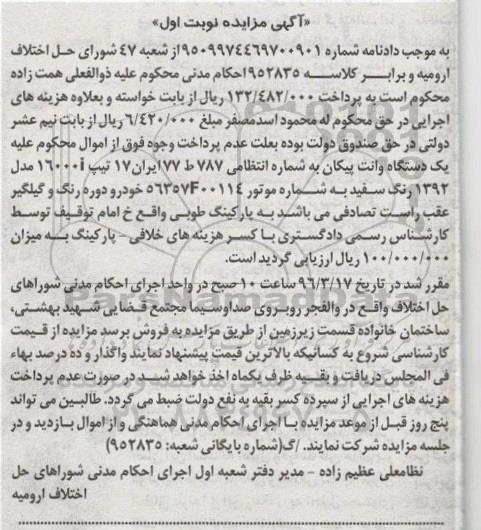 «آگهی مزایده نوبت اول»
به موجب دادنامه شماره ۹۵۰۹۹۷۴۴۶۹۷۰۰۹۰۱از شعبه ۴۷ شورای حل اختلاف
ارومیه و برابر کلاسه ۹۵۲۸۳۵احکام مدنی محکوم علیه ذوالفعلی همت زاده
محکوم است به پرداخت ۱۳۲/۴۸۲/۰۰۰ ریال از بابت خواسته و بعلاوه هزینه های
اجرایی در حق محکوم له محمود اسدمصفر مبلغ ۶/۴۲۰/۰۰۰ ریال از بابت نیم عشر
دولتی در حق صندوق دولت بوده بعلت عدم پرداخت وجوه فوق از اموال محکوم علیه
یک دستگاه وانت پیکان به شماره انتظامی ۷۸۷ ط ۷۷ ایران۱۷ تیپ ۱۶۰۰۰i مدل
۱۳۹۲رنگ سفید به شماره موتور ۵۶۳۵۷۴۰۰۱۱۴ خودرو دوره رنگ و گلگیر
عقب راست تصادفی می باشد به پارکینگ طوبی واقع خ امام توقیف توسط
کارشناس رسمی دادگستری با کسر هزینه های خلافی- پارکینگ به میزان
۱۰۰/۰۰۰/۰۰۰ ریال ارزیابی گردید است.
مقرر شد در تاریخ ۹۶/۳/۱۷ ساعت ۱۰ صبح در واحد اجرای احکام مدنی شوراهای
حل اختلاف واقع در والفجر روبروی صداوسیما مجتمع قضایی شهید بهشتی،
ساختمان خانواده قسمت زیرزمین از طریق مزایده به فروش برسد مزایده از قیمت
کارشناسی شروع به کسانیکه بالاترین قیمت پیشنهاد نمایند واگذار و ده درصد بهاء
فی المجلس دریافت و بقیه ظرف یکماه اخذ خواهد شد در صورت عدم پرداخت
هزینه های اجرایی از سپرده کسر بقیه به نفع دولت ضبط می گردد. طالبین می تواند
پنج روز قبل از موعد مزایده با اجرای احکام مدنی هماهنگی و از اموال بازدید و در
جلسه مزایده شرکت نمایند. /گ(شماره بایگانی شعبه: ۹۵۲۸۳۵)
نظامعلی عظیم زاده - مدیر دفتر شعبه اول اجرای احکام مدنی شوراهای حل
اختلاف ارومیه